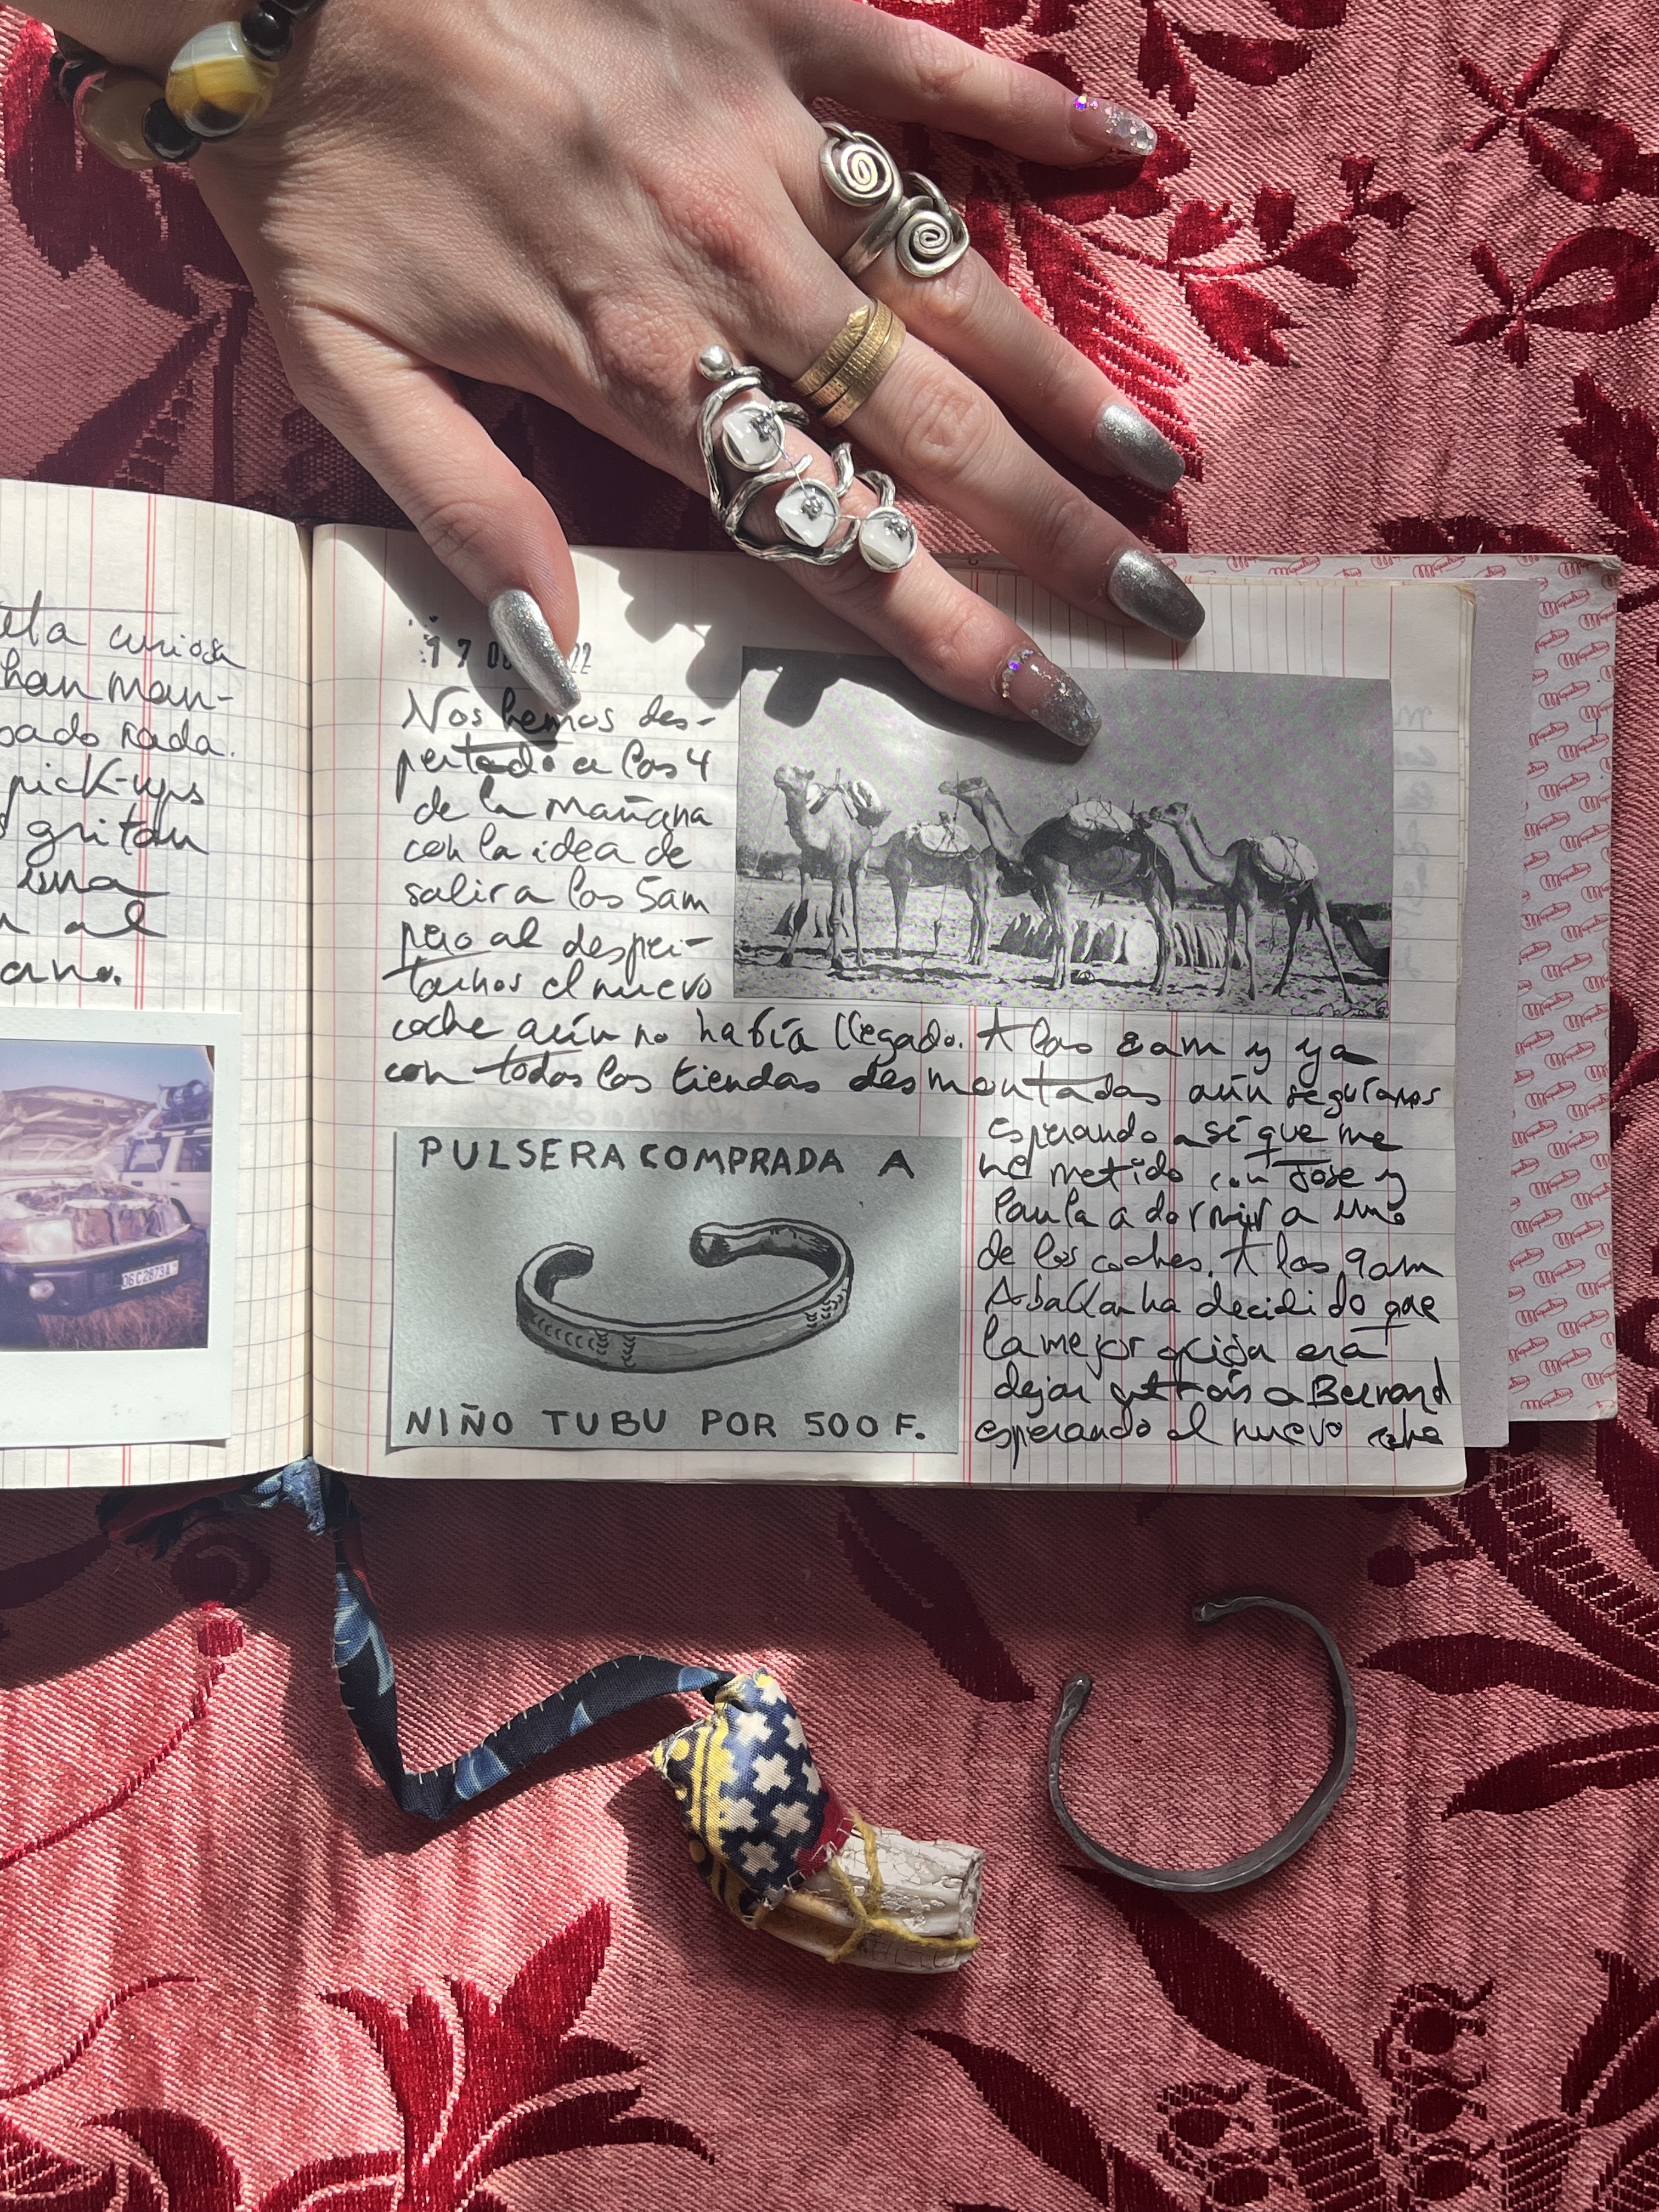 curiosa
han man-
nada.
pick-ups
gritan
una
al
06C2873A
17 22
Nos hemos des-
pertado a las 4
de la mañana
con la idea de
salir a las 5am
pero al desper-
tarnos el nuevo
coche aún no había llegado. A las 8am y ya
con todas las tiendas desmontadas aún seguíamos
esperando así que me
he metido con Jose y
Paula a dormir a uno
de los coches. A las 9am
Aballa ha decidido que
la mejor opción era
dejar atrás a Bernard
esperando el nuevo coche
PULSERA COMPRADA A
NIÑO TUBU POR 500 F.
Miquelrius